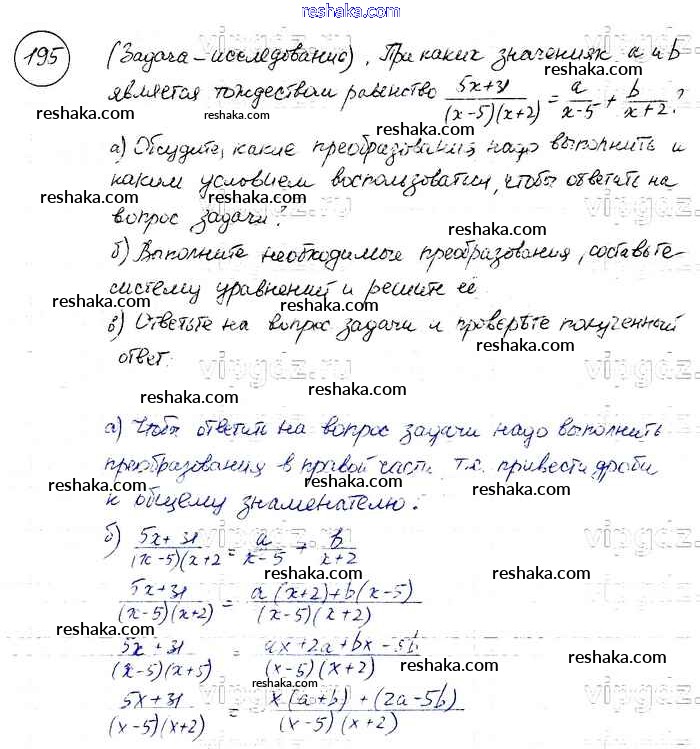 reshaka.com
195
(Задача-исследование). При каких значениях a и b
является тождеством равенство (5x+31)/((x-5)(x+2)) = a/(x-5) + b/(x+2)?
reshaka.com reshaka.com reshaka.com
а) Обсудите, какие преобразования надо выполнить и
каким условием воспользоваться, чтобы ответить на
reshaka.com reshaka.com reshaka.com
вопрос задачи?
б) Выполните необходимые преобразования, составьте
систему уравнений и решите её.
reshaka.com reshaka.com reshaka.com
в) Ответьте на вопрос задачи и проверьте полученный
ответ.
reshaka.com reshaka.com reshaka.com
vipgdz.ru
а) Чтобы ответить на вопрос задачи надо выполнить
reshaka.com reshaka.com reshaka.com
преобразования в правой части т.е. привести дроби
к общему знаменателю.
reshaka.com reshaka.com reshaka.com
б) (5x+31)/((x-5)(x+2 = a/(x-5) + b/(x+2)
reshaka.com reshaka.com reshaka.com
(5x+31)/((x-5)(x+2)) = (a(x+2)+b(x-5))/((x-5)(x+2))
reshaka.com reshaka.com reshaka.com
(5x+31)/((x-5)(x+5)) = (ax+2a+bx-5b)/((x-5)(x+2))
reshaka.com reshaka.com reshaka.com
(5x+31)/((x-5)(x+2)) = (x(a+b)+(2a-5b))/((x-5)(x+2))